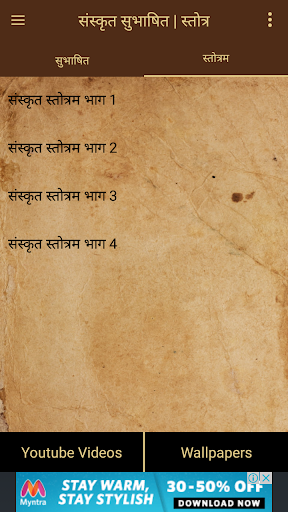 संस्कृत सुभाषित | स्तोत्र
सुभाषित
स्तोत्रम
संस्कृत स्तोत्रम भाग 1
संस्कृत स्तोत्रम भाग 2
संस्कृत स्तोत्रम भाग 3
संस्कृत स्तोत्रम भाग 4
Youtube Videos
Wallpapers
Myntra
STAY WARM,
STAY STYLISH
30-50% OFF
DOWNLOAD NOW